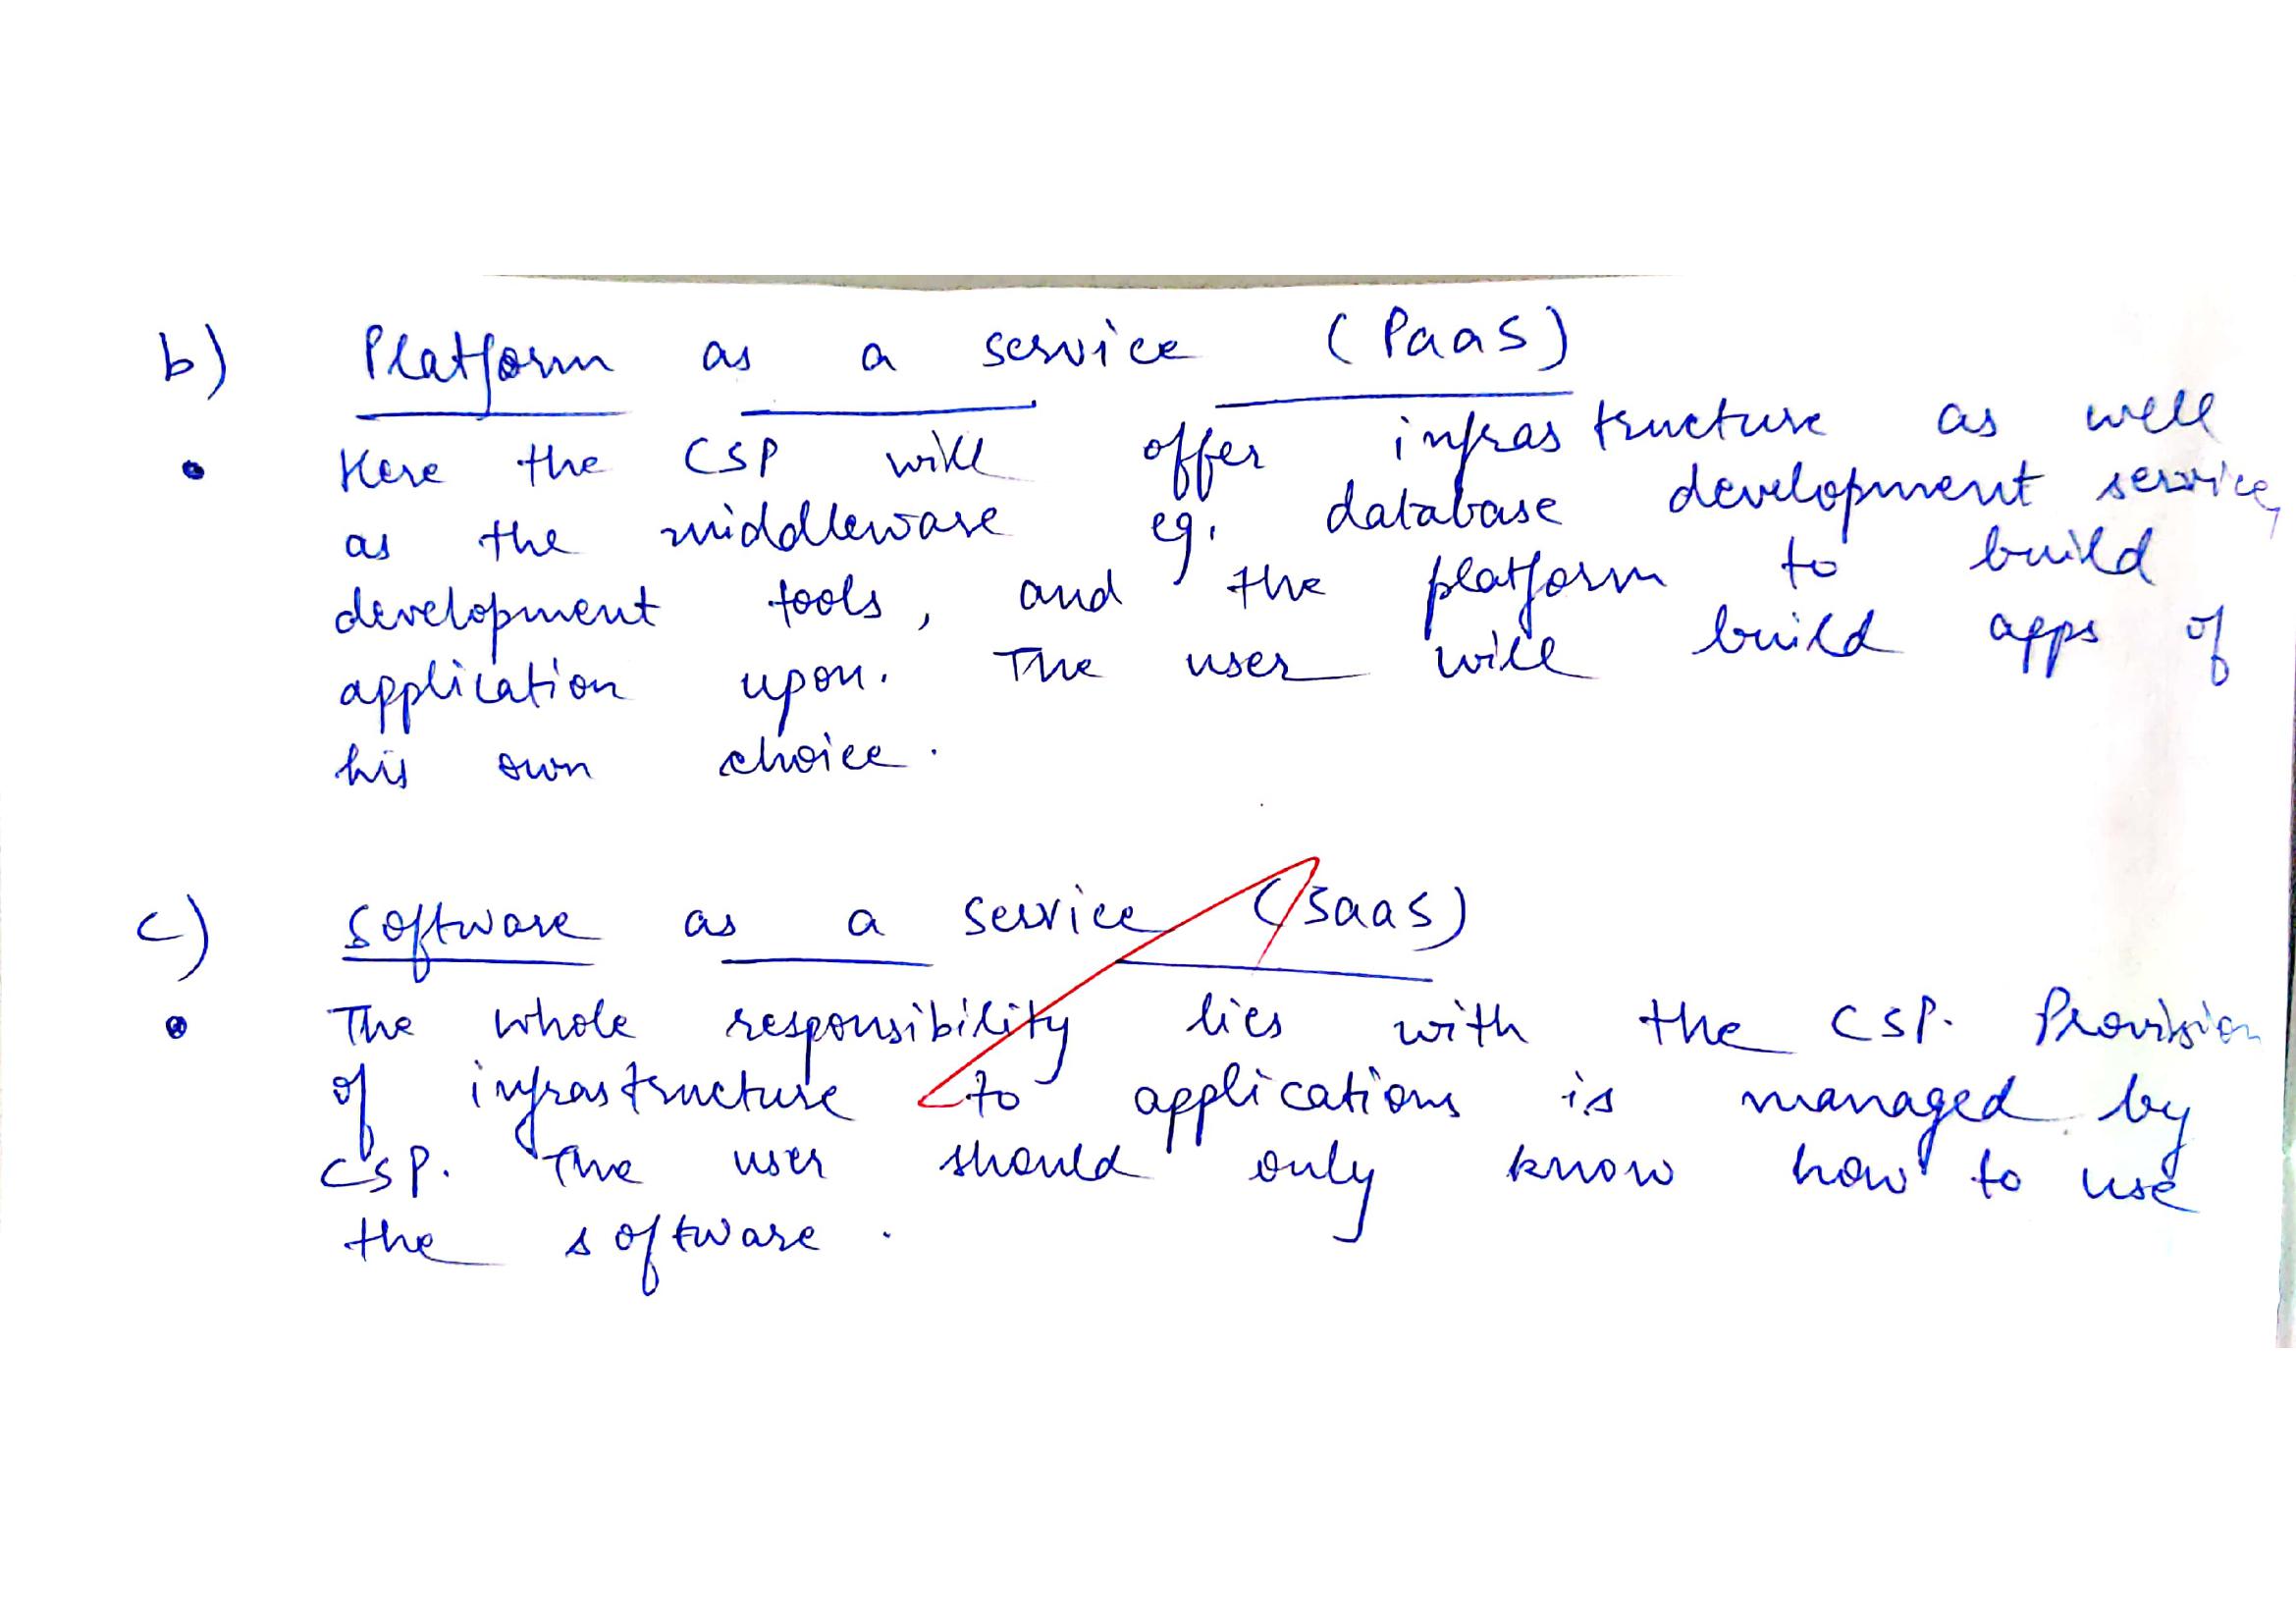 b) Platform as a service (PaaS)
• Here the CSP will offer infrastructure as well
as the middleware eg. database development service,
development tools, and the platform to build
application upon. The user will build apps of
his own choice.
c) Software as a service (SaaS)
• The whole responsibility lies with the CSP. Provision
of infrastructure to applications is managed by
CSP. The user should only know how to use
the software.